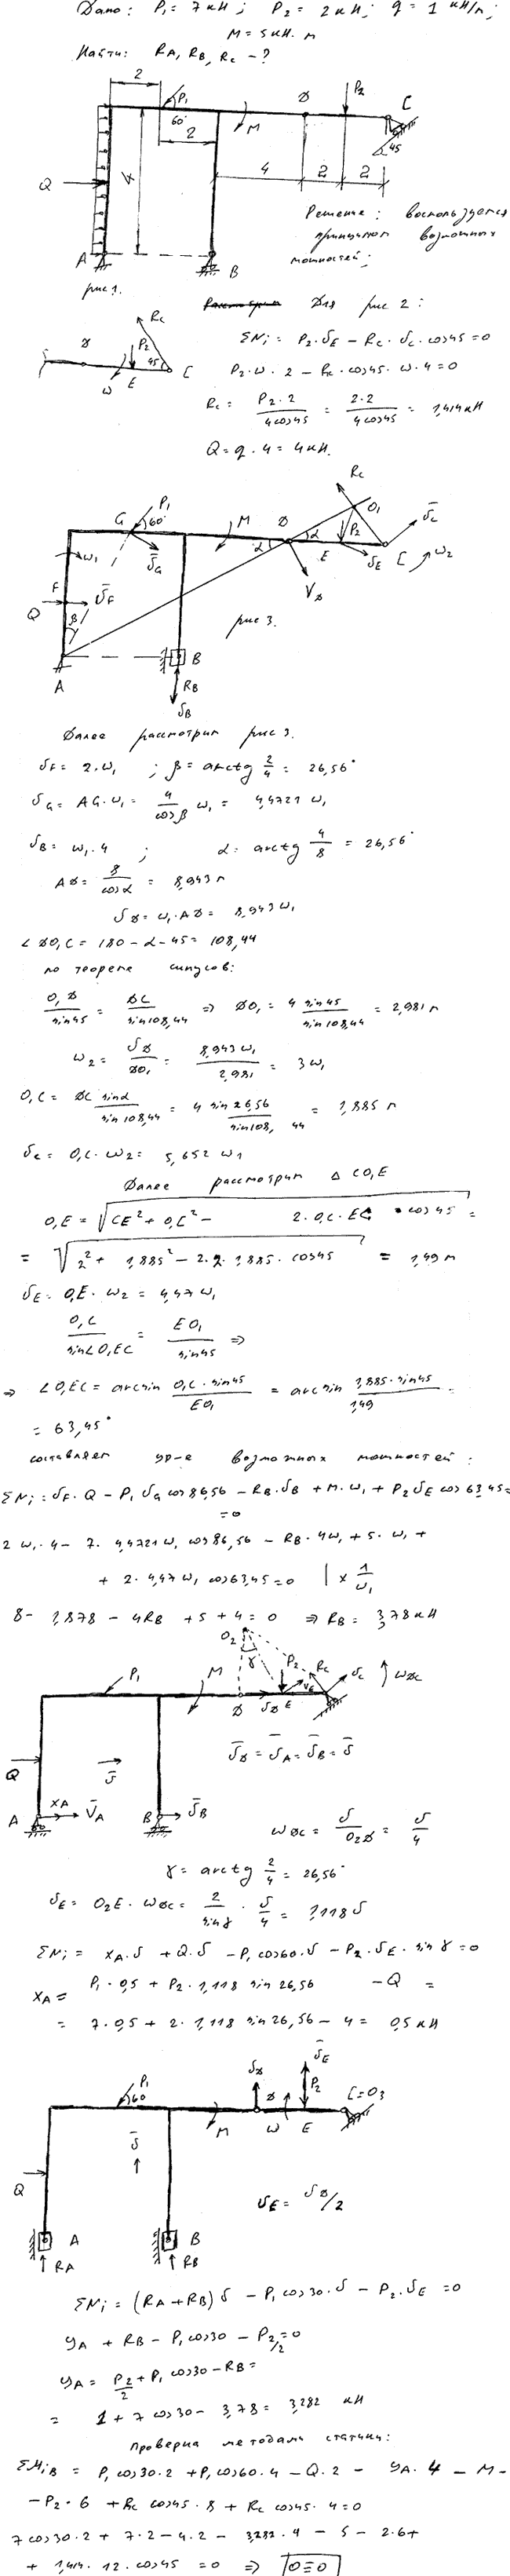 Дано: P₁ = 7 кН; P₂ = 2 кН; q = 1 кН/м;
M = 5 кН·м
Найти: RA, RB, RC - ?
2
P₁
60°
2
M
D
P₂
C
45
4
4
2
2
Q
A
B
рис 1.
Решение: воспользуемся
принципом возможных
мощностей:
Рассмотрим Для рис 2:
RC
D
P₂
45
ω
E
C
ΣNi = P₂·υE - RC·υC·cos45 = 0
P₂·ω·2 - RC·cos45·ω·4 = 0
RC = P₂·2 / 4cos45 = 2·2 / 4cos45 = 1,414 кН
Q = q·4 = 4 кН.
G
P₁
60°
υG
M
D
α
α
RC
O₁
P₂
υC
E
υE
C
ω₂
VD
ω₁
F
Q
υF
β
A
B
RB
υB
рис 3.
Далее рассмотрим рис 3.
υF = 2·ω₁ ; β = arctg 2/4 = 26,56°
υG = AG·ω₁ = 4/cosβ ω₁ = 4,4721 ω₁
υB = ω₁·4 ; α = arctg 4/8 = 26,56°
AD = 8/cosα = 8,943 м
υD = ω₁·AD = 8,943 ω₁
∠DO₁C = 180 - α - 45 = 108,44
по теореме синусов:
O₁D/sin45 = DC/sin108,44 ⇒ DO₁ = 4 sin45/sin108,44 = 2,981 м
ω₂ = υD/DO₁ = 8,943 ω₁/2,981 = 3ω₁
O₁C = DC sinα/sin108,44 = 4 sin26,56/sin108,44 = 1,885 м
υC = O₁C·ω₂ = 5,652 ω₁
Далее рассмотрим Δ CO₁E
O₁E = √(CE² + O₁C² - 2·O₁C·EC·cos45) =
= √(2² + 1,885² - 2·2·1,885·cos45) = 1,49 м
υE = O₁E·ω₂ = 4,47ω₁
O₁C/sin∠O₁EC = EO₁/sin45 ⇒
⇒ ∠O₁EC = arcsin O₁C·sin45/EO₁ = arcsin 1,885·sin45/1,49 =
= 63,45°
составляем ур-е возможных мощностей:
ΣNi = υF·Q - P₁υG cos86,56 - RB·υB + M·ω₁ + P₂υE cos63,45 =
= 0
2ω₁·4 - 7·4,4721ω₁ cos86,56 - RB·4ω₁ + 5·ω₁ +
+ 2·4,47ω₁ cos63,45 = 0 | × 1/ω₁
8 - 1,878 - 4RB + 5 + 4 = 0 ⇒ RB = 3,78 кН
O₂
γ
P₁
M
P₂
RC
υC
ωDC
υE
D
υD
E
Q
υ
XA
A
VA
B
υB
υD = υA = υB = υ
ωDC = υ/O₂D = υ/4
γ = arctg 2/4 = 26,56°
υE = O₂E·ωDC = 2/sinγ · υ/4 = 1,118υ
ΣNi = XA·υ + Q·υ - P₁cos60·υ - P₂·υE·sinγ = 0
XA = P₁·0,5 + P₂·1,118 sin26,56 - Q =
= 7·0,5 + 2·1,118 sin26,56 - 4 = 0,5 кН
P₁
60
υD
D
υE
P₂
C=O₃
M
ω
E
υ
Q
υE = υD/2
A
B
RA
RB
ΣNi = (RA + RB)υ - P₁cos30·υ - P₂·υE = 0
YA + RB - P₁cos30 - P₂/2 = 0
YA = P₂/2 + P₁cos30 - RB =
= 1 + 7cos30 - 3,78 = 3,282 кН
проверка методами статики:
ΣMiB = P₁cos30·2 + P₁cos60·4 - Q·2 - YA·4 - M -
- P₂·6 + RC cos45·8 + RC cos45·4 = 0
7cos30·2 + 7·2 - 4·2 - 3,282·4 - 5 - 2·6 +
+ 1,414·12·cos45 = 0 ⇒ 0≡0